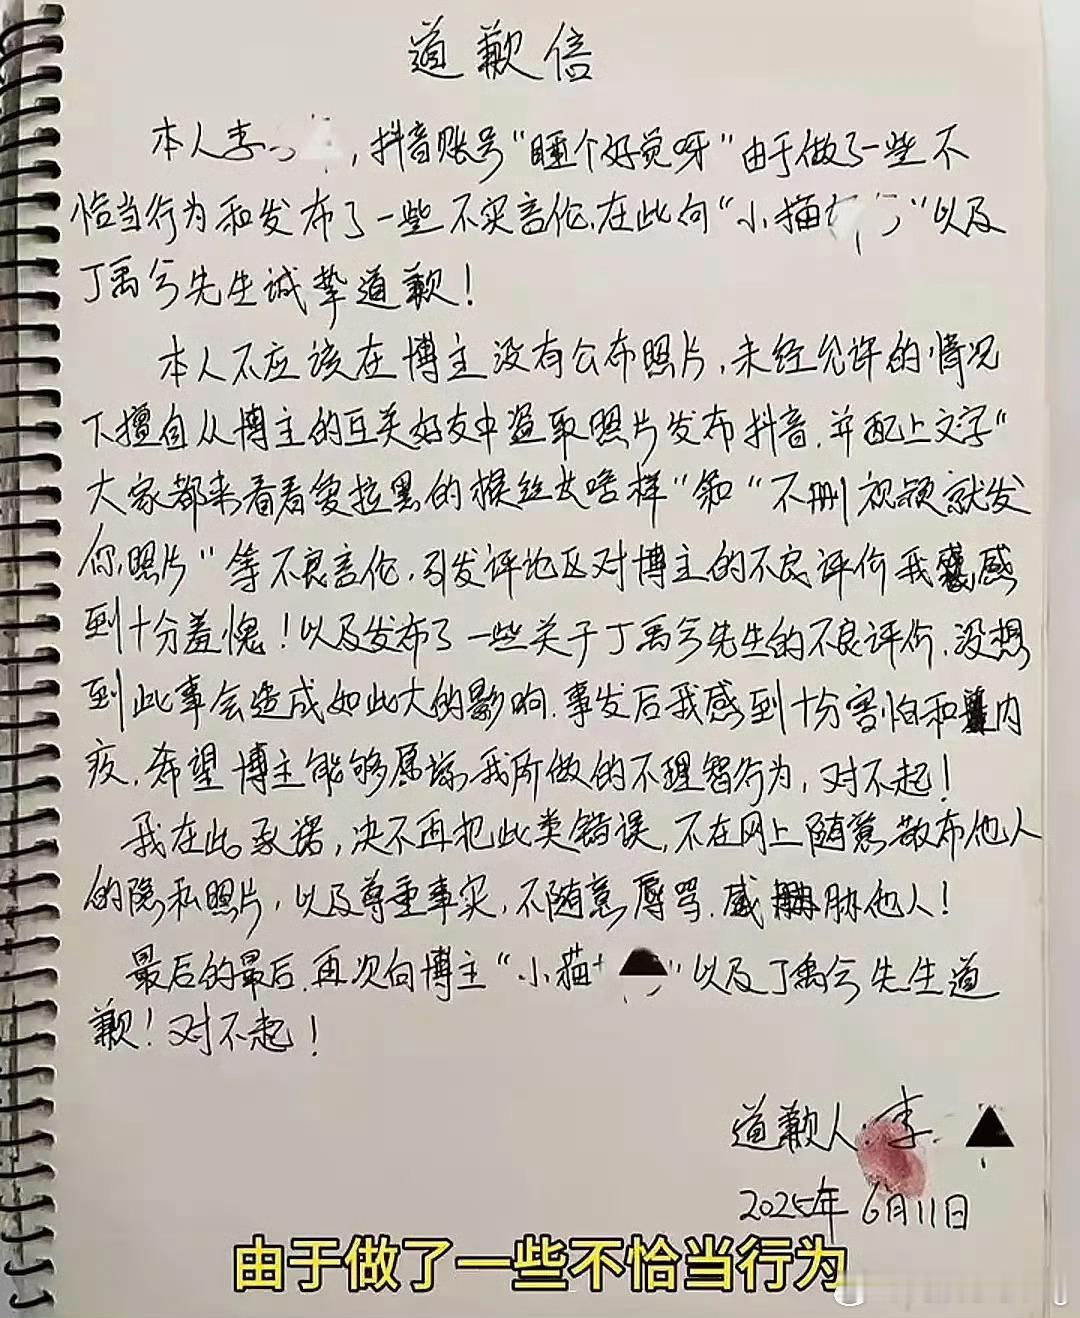 道歉信
本人李，抖音账号“睡个好觉呀”由于做了一些不
恰当行为和发布了一些不实言伦，在此向“小猫”以及
丁禹兮先生诚挚道歉！
本人不应该在博主没有公布照片，未经允许的情况
下擅自从博主的互关好友中盗取照片发布抖音，并配上文字“
大家都来看看爱拉黑的粉丝长啥样”和“不删视频就发
你照片”等不良言伦，引发评论区对博主的不良评价我感
到十分羞愧！以及发布了一些关于丁禹兮先生的不良评价，没想
到此事会造成如此大的影响，事发后我感到十分害怕和内
疚，希望博主能够原谅我所做的不理智行为，对不起！
我在此承诺，决不再犯此类错误，不在网上随意散布他人
的隐私照片，以及尊重事实，不随意辱骂，威胁他人！
最后的最后，再次向博主“小猫”以及丁禹兮先生道
歉！对不起！
道歉人：李
2025年6月11日
由于做了一些不恰当行为